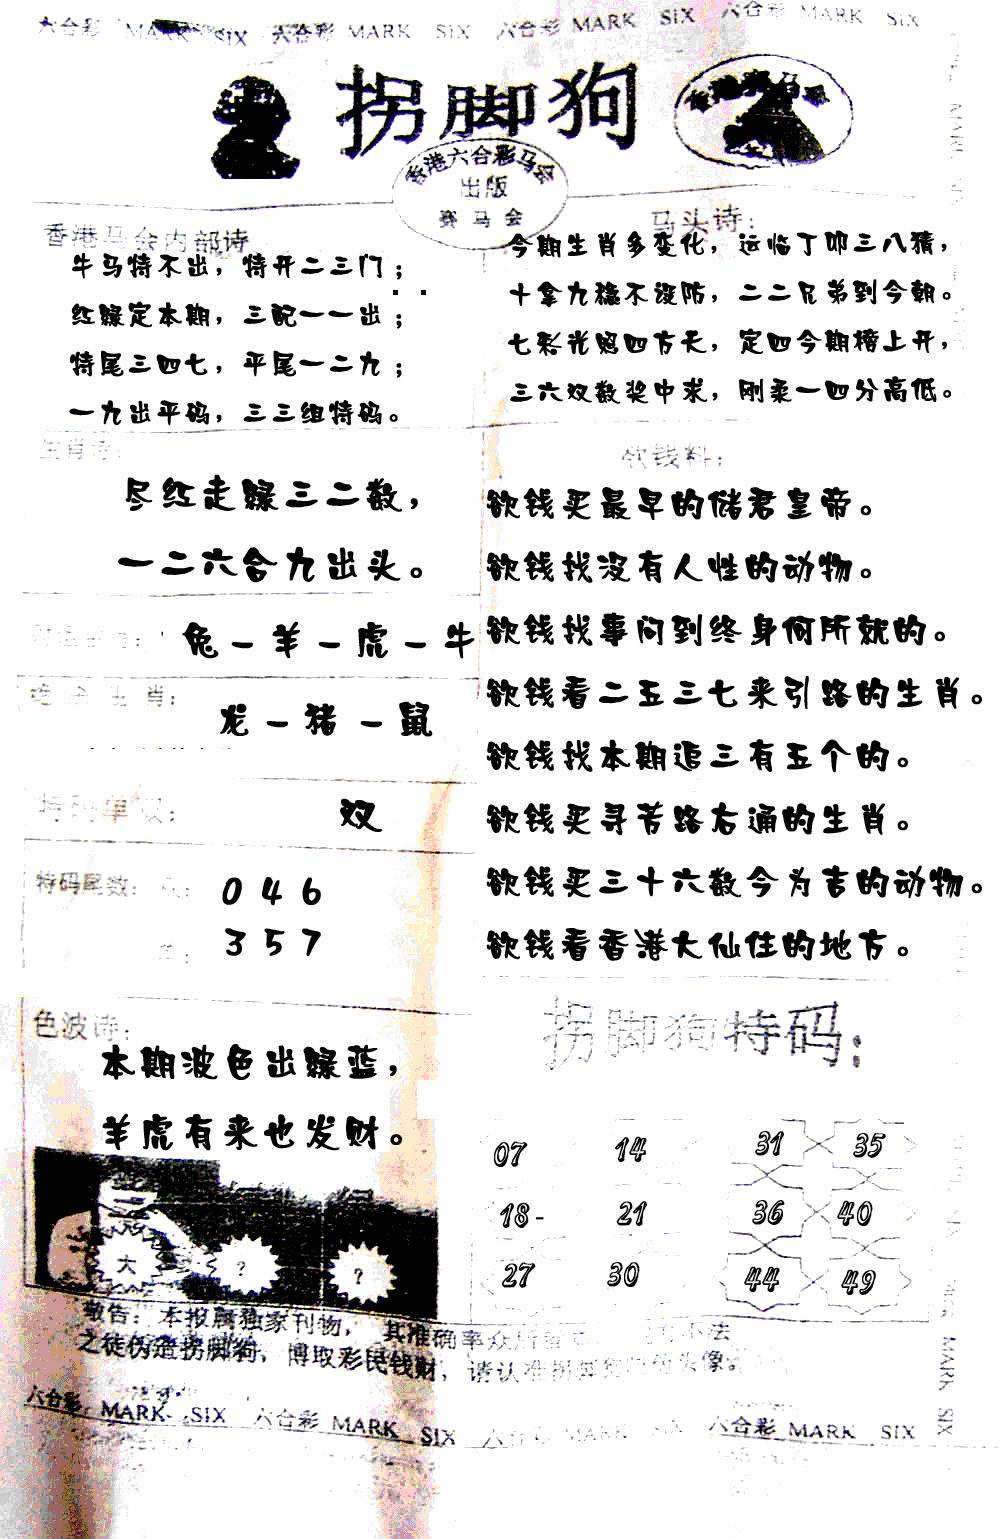 六合彩 MARK SIX 六合彩 MARK SIX 六合彩 MARK SIX 六合彩 MARK SIX
拐脚狗
香港六合彩马会
出版
赛马会
香港马会内部诗
牛马特不出，特开二三门；
红绿定本期，三配一一出；
特尾三四七，平尾一二九；
一九出平码，三三组特码。
马头诗：
今期生肖多变化，运临丁卯三八猜，
十拿九稳不设防，二二兄弟到今朝。
七彩光照四方天，定四今期榜上开，
三六双数奖中求，刚柔一四分高低。
生肖诗：
尽红走绿三二数，
一二六合九出头。
兔－羊－虎－牛
生肖：
龙－猪－鼠
特码单双：
双
特码尾数：
0 4 6
3 5 7
欲钱料：
欲钱买最早的储君皇帝。
欲钱找没有人性的动物。
欲钱找事问到终身何所就的。
欲钱看二五三七来引路的生肖。
欲钱找本期追三有五个的。
欲钱买寻苦路右通的生肖。
欲钱买三十六数今为吉的动物。
欲钱看香港大仙住的地方。
色波诗：
本期波色出绿蓝，
羊虎有来也发财。
大 ? ?
拐脚狗特码：
07 14 31 35
18- 21 36 40
27 30 44 49
敬告：本报属独家刊物，其准确率众所 不法
之徒伪造拐脚狗，博取彩民钱财，请认准拐脚 头像。
六合彩 MARK SIX 六合彩 MARK SIX 六合彩 MARK 六合彩 MARK SIX
MARK SIX